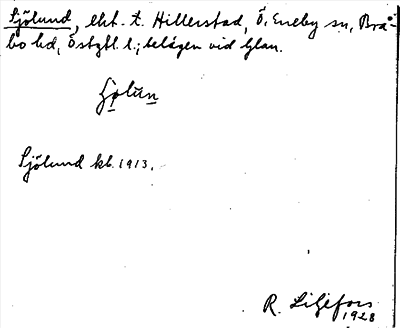 Sjölund, lht. t. Hillerstad, Ö. Eneby sn, Brå-
bo hd, Östgtl. l.; belägen vid Glan.
Sjölund kb. 1913.
R. Liljefors
1928